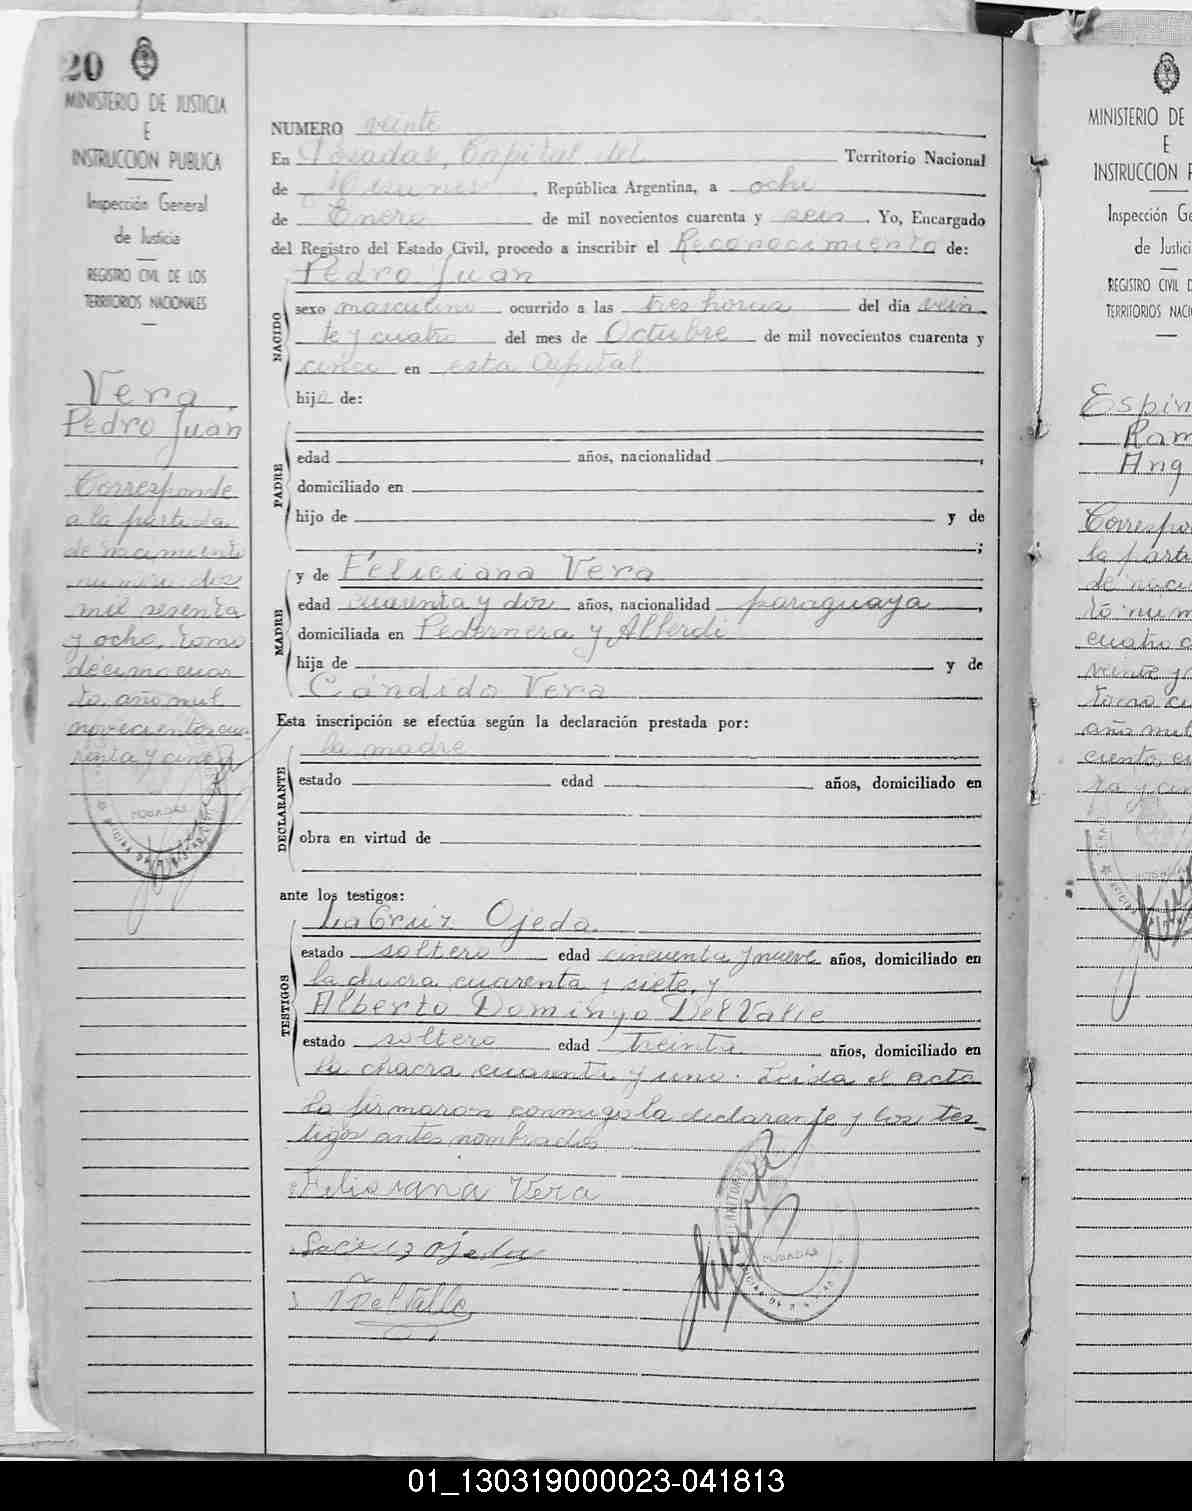 20
MINISTERIO DE JUSTICIA
E
INSTRUCCION PUBLICA
Inspección General
de Justicia
REGISTRO CIVIL DE LOS
TERRITORIOS NACIONALES
Vera
Pedro Juan
Corresponde
a la partida
de nacimiento
numero dos
mil sesenta
y ocho, tomo
décimocuar
to, año mil
novecientos cua-
renta y cinco
POSADAS
NUMERO veinte
En Posadas, Capital del Territorio Nacional
de Misiones, República Argentina, a ocho
de Enero de mil novecientos cuarenta y seis. Yo, Encargado
del Registro del Estado Civil, procedo a inscribir el Reconocimiento de:
Pedro Juan
NACIDO
sexo masculino ocurrido a las tres horas del día vein
te y cuatro del mes de Octubre de mil novecientos cuarenta y
cinco en esta Capital
hijo de:
PADRE
edad años, nacionalidad ,
domiciliado en
hijo de y de
;
MADRE
y de Feliciana Vera
edad cuarenta y dos años, nacionalidad paraguaya,
domiciliada en Pedernera y Alberdi
hija de y de
Cándido Vera
Esta inscripción se efectúa según la declaración prestada por:
DECLARANTE
la madre
estado edad años, domiciliado en
obra en virtud de
ante los testigos:
TESTIGOS
LaCruz Ojeda
estado soltero edad cincuenta y nueve años, domiciliado en
la chacra cuarenta y siete, y
Alberto Domingo Del Valle
estado soltero edad treinta años, domiciliado en
la chacra cuarenta y uno. Leida el acta
la firmaron conmigo la declarante y los tes_
tigos antes nombrados
Felisiana Vera
Lacruz Ojeda
DelValle
POSADAS
MINISTERIO DE
E
INSTRUCCION P
Inspección Ge
de Justici
REGISTRO CIVIL D
TERRITORIOS NACI
Espin
Ram
Ang
Correspo
la parti
de naci
to núm
cuatro c
veinte y
tomo cu
año mil
ciento, cu
ta y cin
01_130319000023-041813